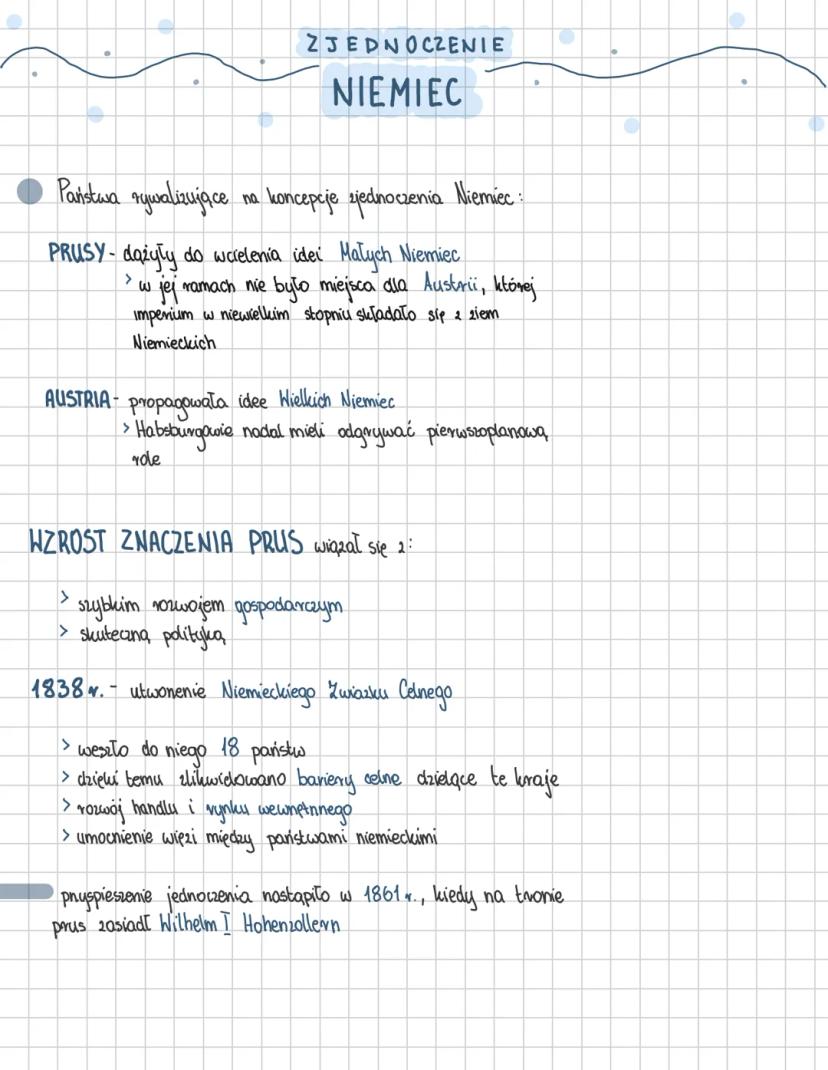 ZJEDNOCZENIE
NIEMIEC
Państwa rywalizujące na koncepcje zjednoczenia Niemiec:
PRUSY - dążyły do wcielenia idei Małych Niemiec
> w jej ramach nie było miejsca dla Austrii, której
imperium w niewielkim stopniu składało się z ziem
Niemieckich
AUSTRIA - propagowała idee Wielkich Niemiec
> Habsburgowie nadal mieli odgrywać pierwszoplanową
role
WZROST ZNACZENIA PRUS wiązał się z:
> szybkim rozwojem gospodarczym
> skuteczną polityką
1838 r. - utworzenie Niemieckiego Związku Celnego
> weszło do niego 18 państw
> dzięki temu zlikwidowano bariery celne dzielące te kraje
> rozwój handlu i rynku wewnętrznego
> umocnienie więzi między państwami niemieckimi
przyspieszenie jednoczenia nastąpiło w 1861 r., kiedy na tronie
prus zasiadł Wilhelm I Hohenzollern